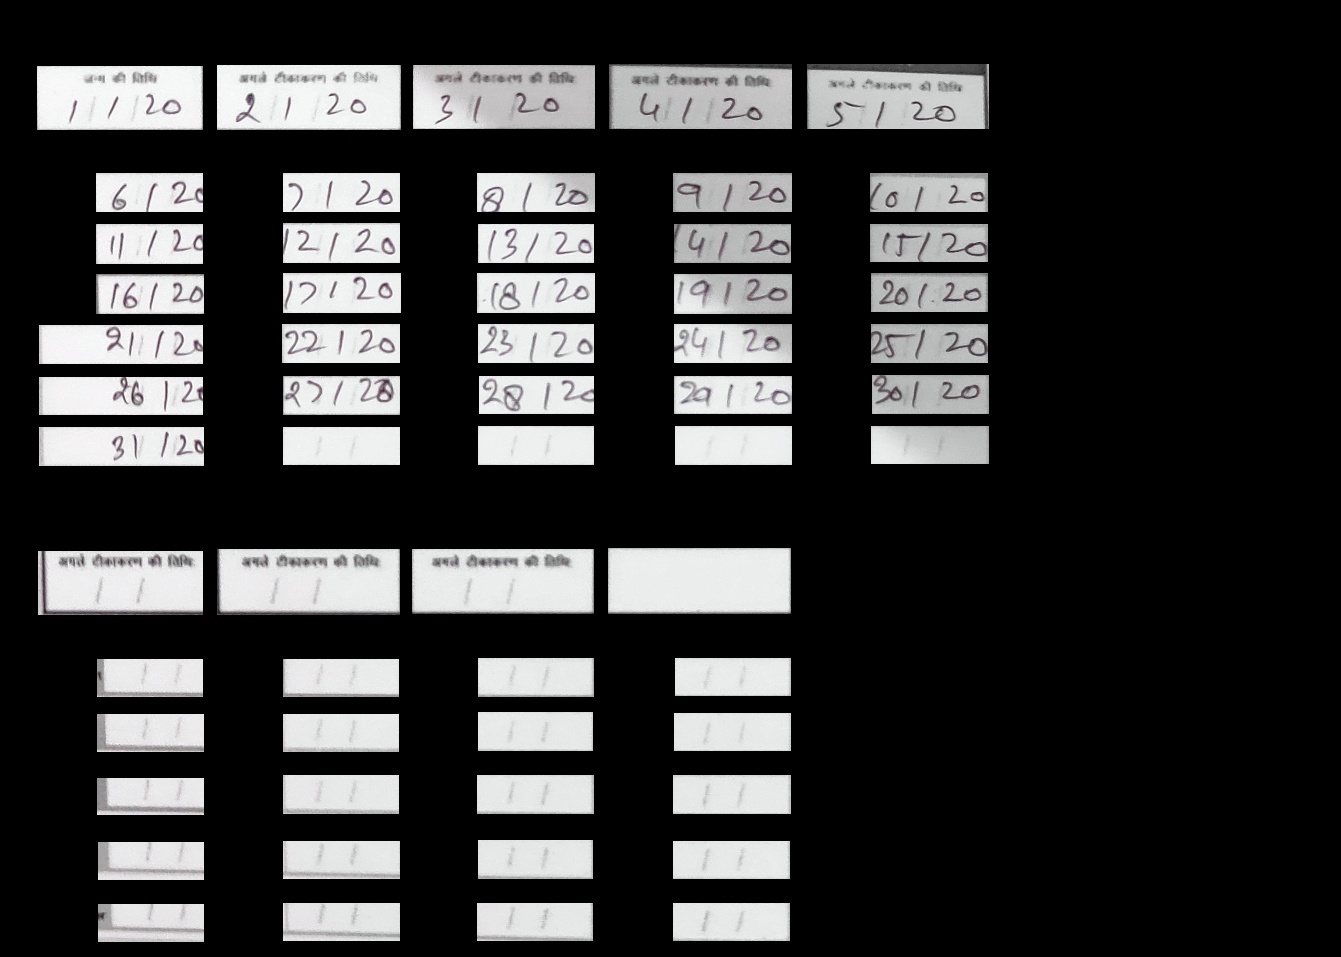 जन्म की तिथि अगले टीकाकरण की तिथि अगले टीकाकरण की तिथि अगले टीकाकरण की तिथि अगले टीकाकरण की तिथि
1/1/20 2/1/20 3/1/20 4/1/20 5/1/20
6/1/20 7/1/20 8/1/20 9/1/20 10/1/20
11/1/20 12/1/20 13/1/20 14/1/20 15/1/20
16/1/20 17/1/20 18/1/20 19/1/20 20/1/20
21/1/20 22/1/20 23/1/20 24/1/20 25/1/20
26/1/20 27/1/20 28/1/20 29/1/20 30/1/20
31/1/20 / / / / / / / /
अगले टीकाकरण की तिथि अगले टीकाकरण की तिथि अगले टीकाकरण की तिथि
/ / / / / /
/ / / / / / / /
/ / / / / / / /
/ / / / / / / /
/ / / / / / / /
/ / / / / / / /